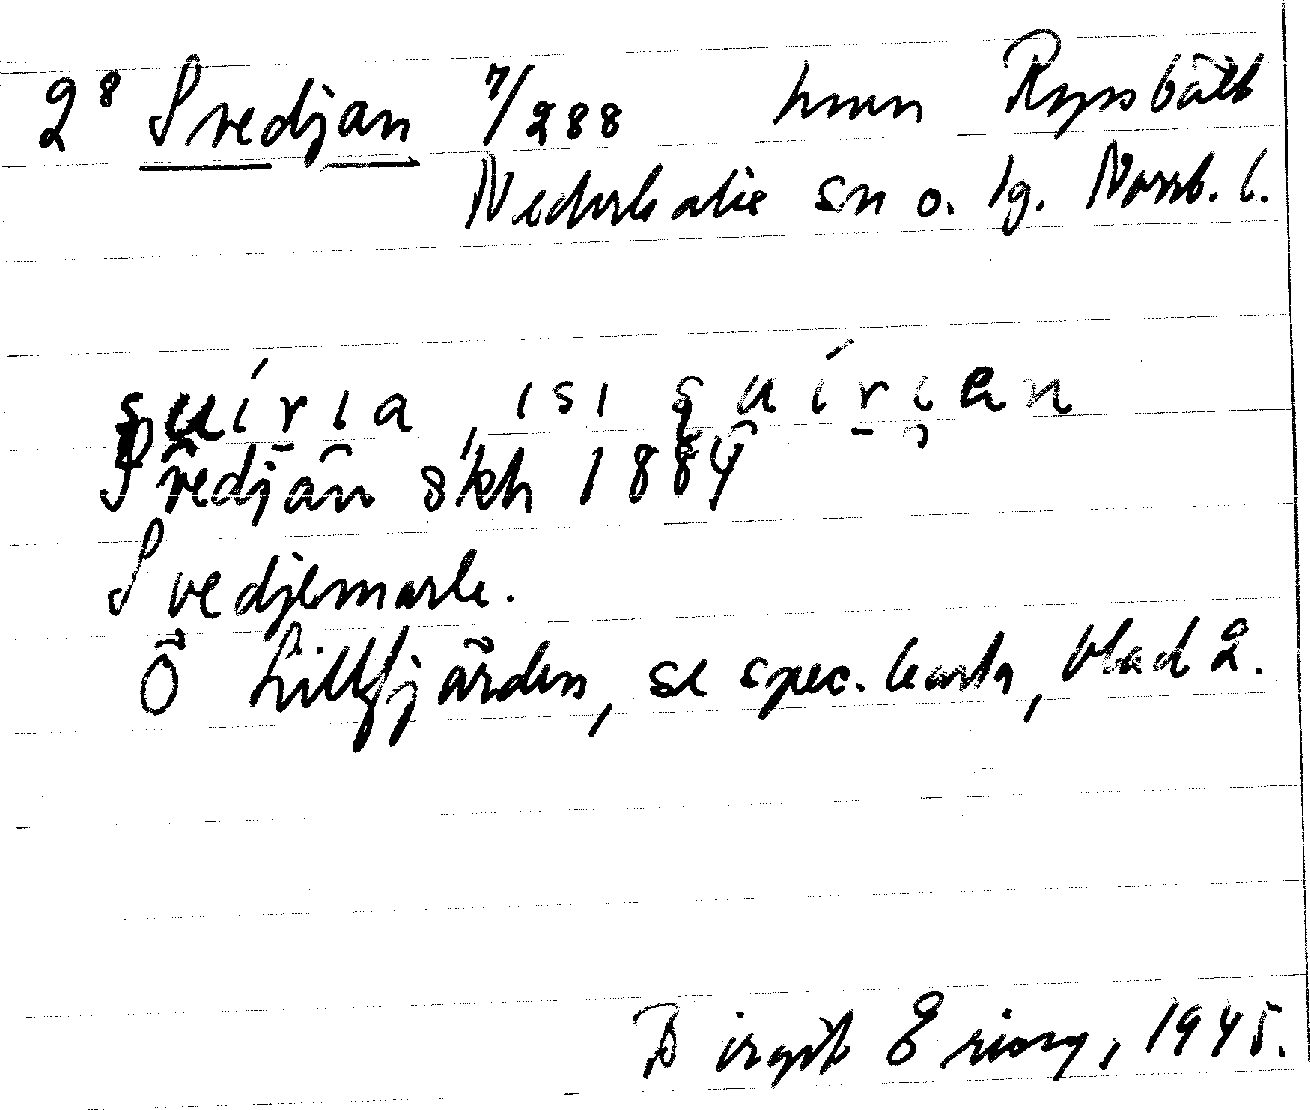 2⁸ Svedjan 7/288 hmn Ryssbält
Nederkalix sn o. lg. Norrb. l.
Svedjan skh 1884
Svedjemark.
Ö Lillfjärden, se spec.karta, blad 2.
Birgit Ericzy, 1945.